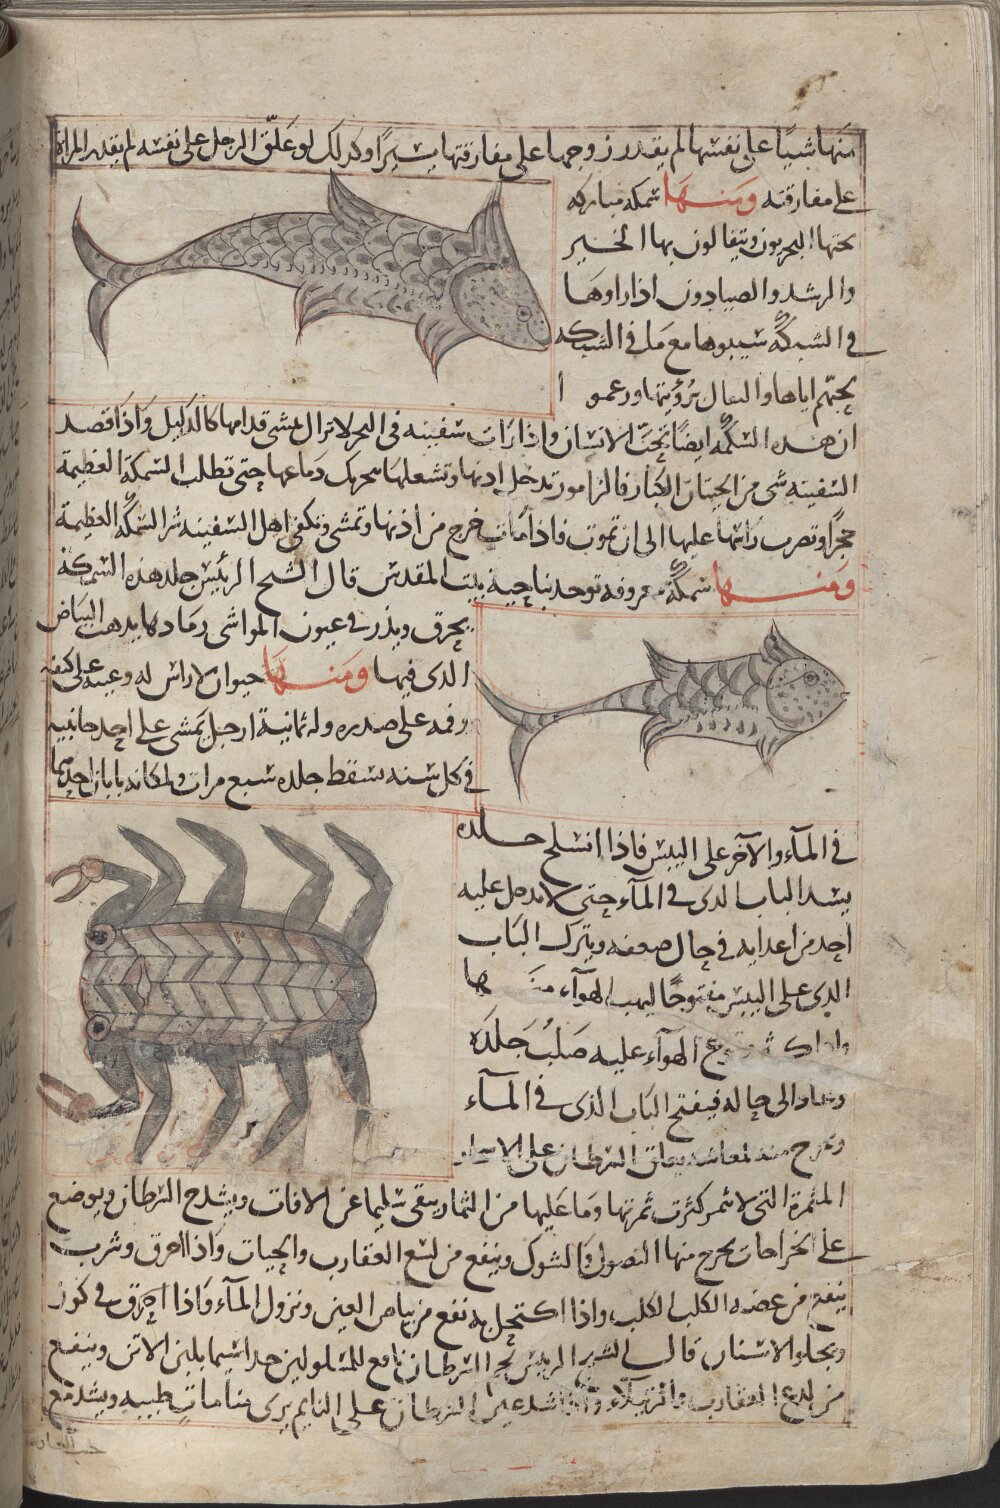 منها شيا على نفسها لم يقدر زوجها على مفارقتها يسيرا وكدلك لو علق الرجل على نفسه لم يقدر المراة
على مفارقته ومنها سمكة مباركه
البحريون ويتفالون بها الخير
والرشد والصيادون اذا راوها
في الشبكة سيبوها مع ما في الشبكه
اياها
ان هده السمكة ايضا تحب الانسان واذا رات سفينه في البحر لا تزال تمشي قدامها كالدليل واذا قصد
السفينه شي من الحيتان الكبار فالزامور تدخل ادنها وتشغلها دماغها حتى تطلب السمكة العظيمة
حجرا وتضرب راسها عليها الى ان تموت فاذا ماتت خرج من اذنها وتمشي وتكفي اهل السفينه شر السمكة العظيمة
ومنها سمكة معروفه توجد بناحية بيت المقدس قال الشيخ الرئيس جلد هذه السمكة
يحرق ويذر في عيون المواشي رمادها يدهب البياض
الدى فيها ومنها حيوان لا راس له وعينه على كتفه
وفمه على صدره وله ثمانية ارجل يمشي على احد جانبيه
في كل سنه يسقط جلده سبع مرات ولمكانه بابان احدهما
في المآء والآخر على اليبس فاذا انسلخ جلده
يسد الباب الدى في المآء حتى لا يدخل عليه
احد من اعدايه في حال ضعفه ويترك الباب
الدى على اليبس مفتوحا ليهب الهوآء
الهوآء عليه صلب جلده
وعاد الى حاله فيفتح الباب الذى في المآء
ويخرج منه لمعاشه يعلق السرطان على الاشجار
المثمرة التي لا تثمر كثرت ثمرتها وما عليها من الثمار يبقى سليما عن الافات ويشدح السرطان ويوضع
على الجراحات يخرج منها النصول والشوك وينفع من لسع العقارب والحيات واذا احرق وشرب
ينفع من عضه الكلب الكلب واذا اكتحل به نفع من بياض العين ونزول المآء واذا احرق في كوز
ويجلو الاسنان قال الشيخ الرييس لحم السرطان نافع للمسلولين جدا سيما بلبن الاتن وينفع
من لدع العقارب والرتيلآء واذا شد عين السرطان على النايم يرى منامات طيبه ويشد مع